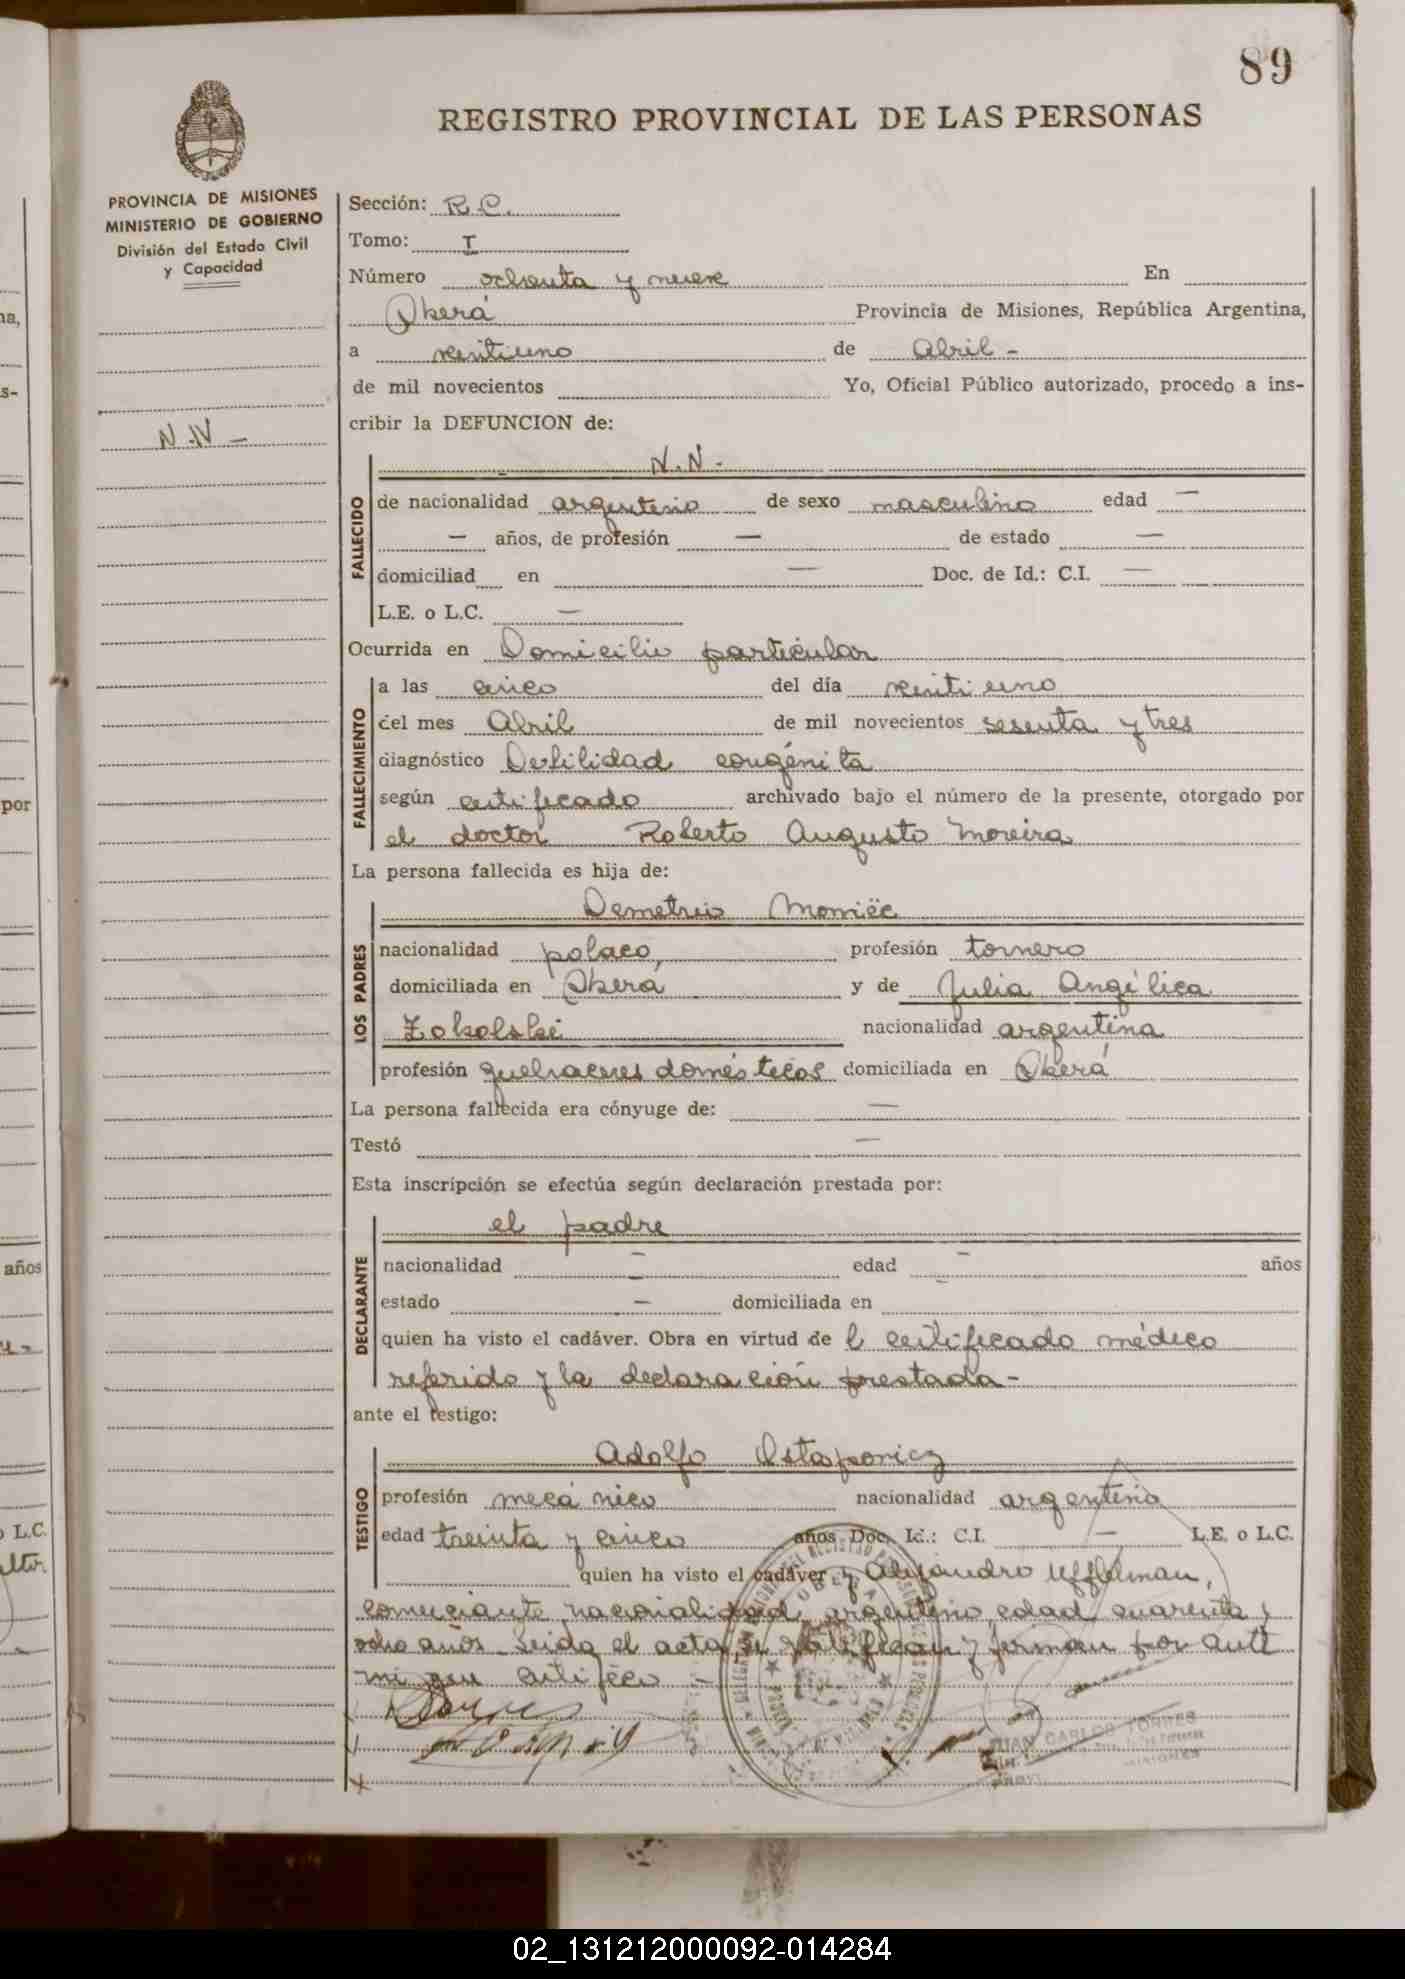 89
REGISTRO PROVINCIAL DE LAS PERSONAS
PROVINCIA DE MISIONES
MINISTERIO DE GOBIERNO
División del Estado Civil
y Capacidad
N.N -
Sección: R.C.
Tomo: I
Número ochenta y nueve En
Oberá Provincia de Misiones, República Argentina,
a veintiuno de Abril -
de mil novecientos Yo, Oficial Público autorizado, procedo a ins-
cribir la DEFUNCION de:
N.N.
FALLECIDO
de nacionalidad argentino de sexo masculino edad —
— años, de profesión — de estado —
domiciliad en — Doc. de Id.: C.I. —
L.E. o L.C. —
Ocurrida en Domicilio particular
FALLECIMIENTO
a las cinco del día veintiuno
del mes Abril de mil novecientos sesenta y tres
diagnóstico Debilidad congénita
según certificado archivado bajo el número de la presente, otorgado por
el doctor Roberto Augusto Moreira
La persona fallecida es hija de:
LOS PADRES
Demetrio Momiëc
nacionalidad polaco, profesión tornero
domiciliada en Oberá y de Julia Angélica
Zokolski nacionalidad argentina
profesión quehaceres domésticos domiciliada en Oberá
La persona fallecida era cónyuge de: —
Testó —
Esta inscripción se efectúa según declaración prestada por:
DECLARANTE
el padre
nacionalidad — edad — años
estado — domiciliada en
quien ha visto el cadáver. Obra en virtud de l certificado médico
referido y la declaración prestada -
ante el testigo:
TESTIGO
Adolfo Ostapowicz
profesión mecánico nacionalidad argentino
edad treinta y cinco años Doc. Id.: C.I. — L.E. o L.C.
quien ha visto el cadáver y Alejandro Uffelman,
comerciante, nacionalidad argentino, edad cuarenta y
ocho años. Leida el acta se ratifican y firman por ante
mi que certifico -
JUAN CARLOS TORRES
MISIONES
na,
s-
por
años
o L.C.
02_131212000092-014284